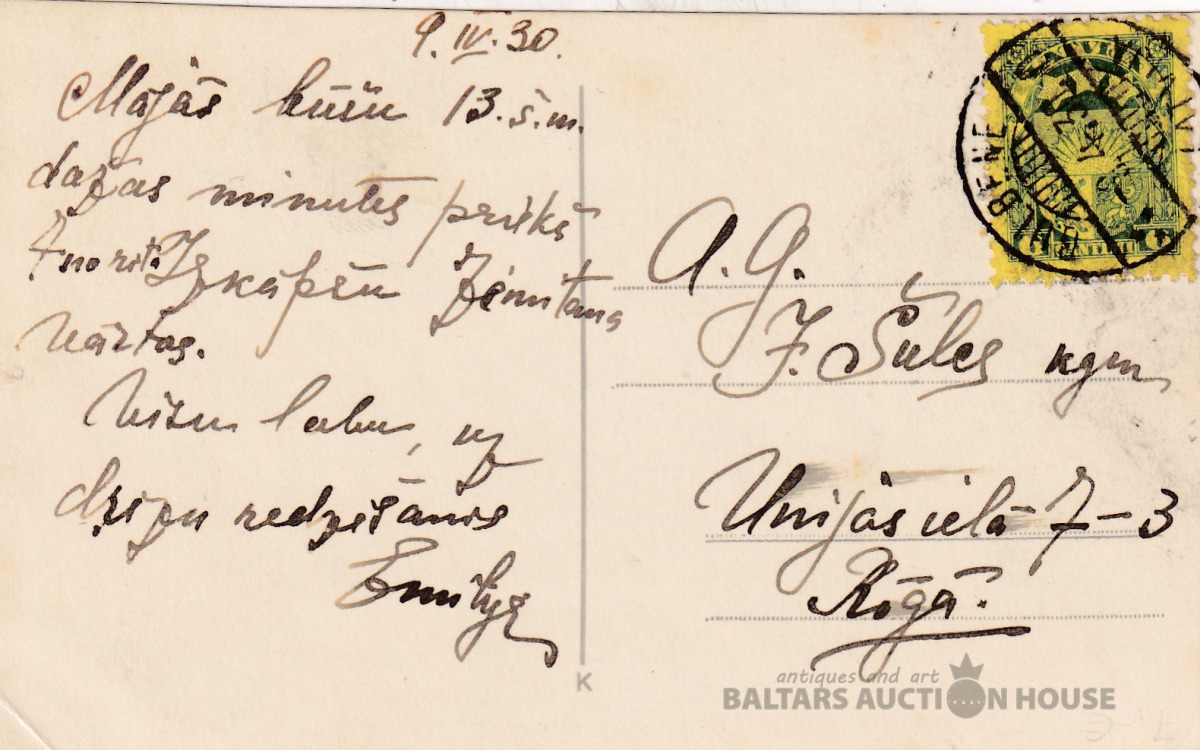 9.IV.30.
Mājās būšu 13.š.m.
dažas minutes priekš
7 no rīta. Izkāpšu Zemitana
Vārtos.
Visu labu, uz
drīzu redzēšanos
Emilija
A. G.
J. Šulcs kgm
Unijas ielā 7-3
Rīgā.
LATVIJA
GULBENE
6 SANTIMI 6
K
antiques and art
BALTARS AUCTION HOUSE